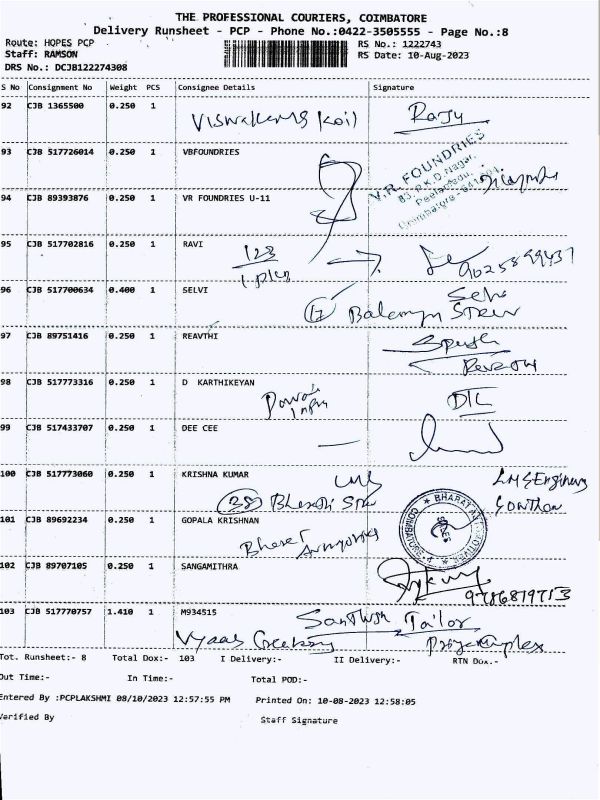 THE PROFESSIONAL COURIERS, COIMBATORE
Delivery Runsheet - PCP - Phone No.:0422-3505555 - Page No.:8
Route: HOPES PCP RS No.: 1222743
Staff: RAMSON RS Date: 10-Aug-2023
DRS No.: DCJB122274308
S No Consignment No Weight PCS Consignee Details Signature
92 CJB 1365500 0.250 1 Raju
93 CJB 517726014 0.250 1 VBFOUNDRIES
V.R. FOUNDRIES
83, P.K.D. Nagar,
Peelamedu,
Coimbatore - 641 004.
94 CJB 89393876 0.250 1 VR FOUNDRIES U-11
95 CJB 517702816 0.250 1 RAVI
123
9025899437
96 CJB 517700634 0.400 1 SELVI
17
97 CJB 89751416 0.250 1 REAVTHI
98 CJB 517773316 0.250 1 D KARTHIKEYAN
99 CJB 517433707 0.250 1 DEE CEE
100 CJB 517773060 0.250 1 KRISHNA KUMAR
38
101 CJB 89692234 0.250 1 GOPALA KRISHNAN
Bharat
102 CJB 89707105 0.250 1 SANGAMITHRA
9786819713
103 CJB 517770757 1.410 1 M934515
Tailor
Vyaas
Tot. Runsheet:- 8 Total Dox:- 103 I Delivery:- II Delivery:- RTN Dox.-
Out Time:- In Time:- Total POD:-
Entered By :PCPLAKSHMI 08/10/2023 12:57:55 PM Printed On: 10-08-2023 12:58:05
Verified By Staff Signature